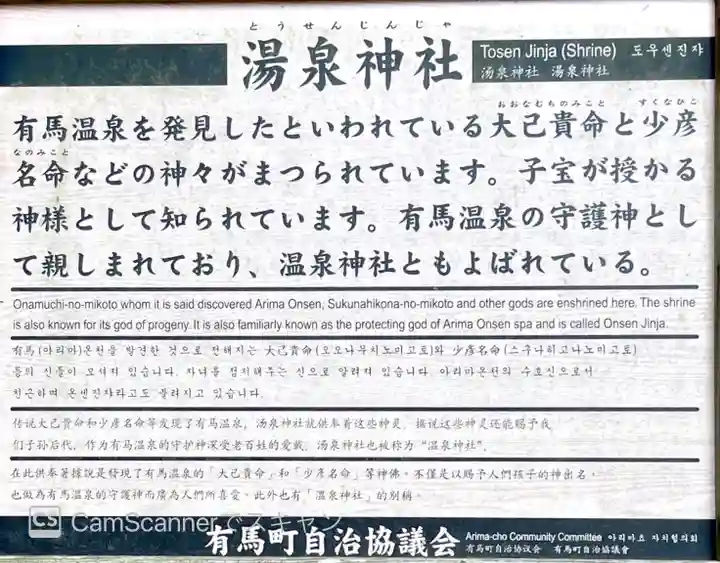 とうせんじんじゃ
湯泉神社
Tosen Jinja (Shrine) 도우센진쟈
汤泉神社 湯泉神社
おおなむちのみこと すくなひこ
有馬温泉を発見したといわれている大己貴命と少彦
なのみこと
名命などの神々がまつられています。子宝が授かる
神様として知られています。有馬温泉の守護神とし
て親しまれており、温泉神社ともよばれている。
Onamuchi-no-mikoto whom it is said discovered Arima Onsen, Sukunahikona-no-mikoto and other gods are enshrined here. The shrine
is also known for its god of progeny. It is also familiarly known as the protecting god of Arima Onsen spa and is called Onsen Jinja.
有馬(아리마)온천을 발견한 것으로 전해지는 大己貴命(오오나무치노미고토)와 少彦名命(스쿠나히고나노미고토)
등의 신들이 모셔져 있습니다. 자녀를 점지해주는 신으로 알려져 있습니다. 아리마온천의 수호신으로서
친근하며 온센진자라고도 불려지고 있습니다.
传说大己贵命和少彦名命等发现了有马温泉，汤泉神社就供奉着这些神灵。据说这些神灵还能赐予我
们子孙后代，作为有马温泉的守护神深受老百姓的爱戴，汤泉神社也被称为“温泉神社”。
在此供奉著據說是發現了有馬溫泉的「大己貴命」和「少彦名命」等神佛。不僅是以賜予人們孩子的神出名，
也做為有馬溫泉的守護神而廣為人們所喜愛。此外也有「溫泉神社」的別稱。
CS CamScannerでスキャン
有馬町自治協議会
Arima-cho Community Committee 아리마쵸 자치협의회
有马町自治协议会 有馬町自治協議會